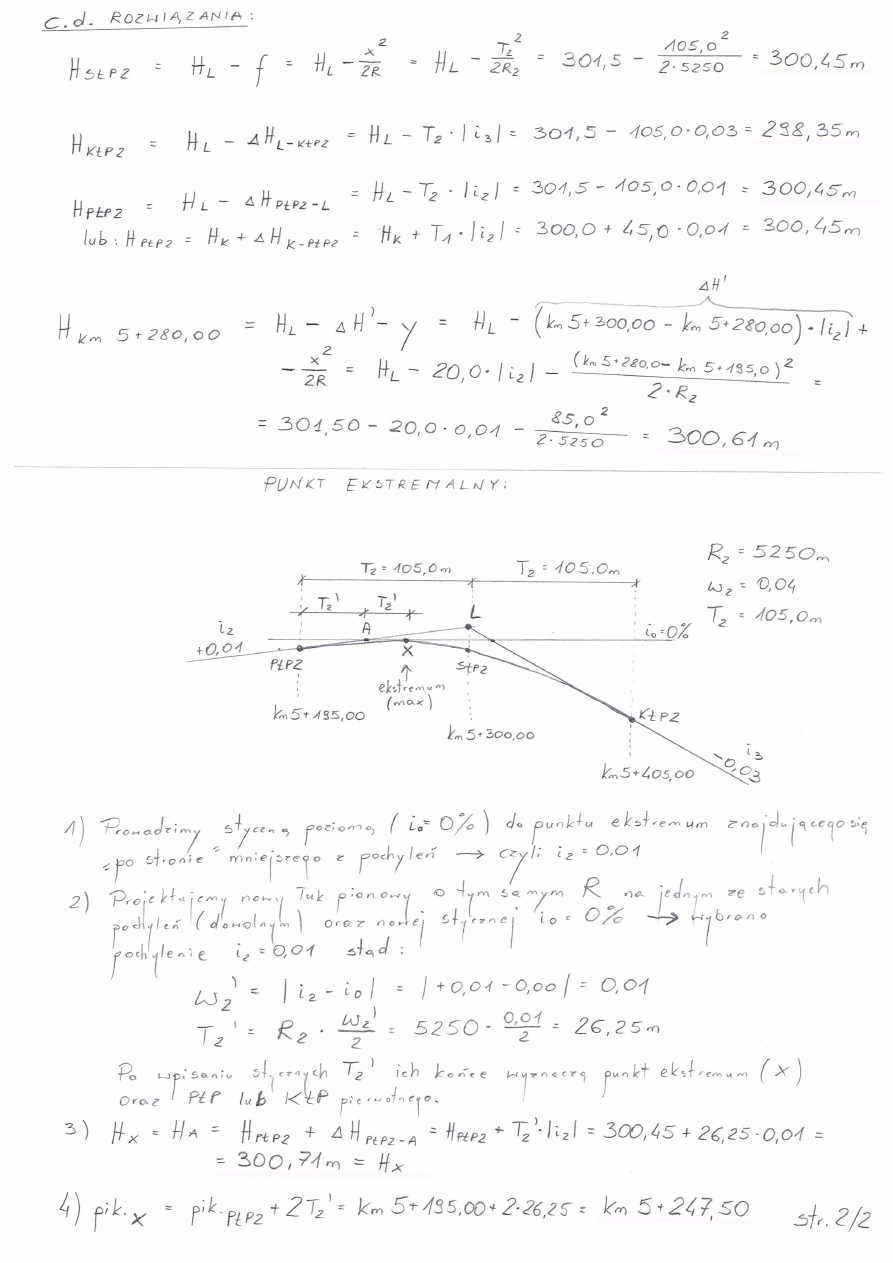 c.d. ROZWIĄZANIA:
H_StP2 = H_L - f = H_L - x²/2R = H_L - T_2²/2R_2 = 301,5 - 105,0²/2·5250 = 300,45m
H_KŁP2 = H_L - ΔH_L-KŁP2 = H_L - T_2·|i_3| = 301,5 - 105,0·0,03 = 298,35m
H_PŁP2 = H_L - ΔH_PŁP2-L = H_L - T_2·|i_2| = 301,5 - 105,0·0,01 = 300,45m
lub: H_PŁP2 = H_K + ΔH_K-PŁP2 = H_K + T_1·|i_2| = 300,0 + 45,0·0,01 = 300,45m
ΔH'
H_km 5+280,00 = H_L - ΔH' - y = H_L - (km 5+300,00 - km 5+280,00)·|i_2| +
- x²/2R = H_L - 20,0·|i_2| - (km 5+280,0 - km 5+195,0)²/2·R_2 =
= 301,50 - 20,0·0,01 - 85,0²/2·5250 = 300,61m
PUNKT EKSTREMALNY:
T_2 = 105,0m T_2 = 105.0m
R_2 = 5250m
ω_2 = 0,04
T_2 = 105,0m
T_2' T_2'
L
i_2
+0,01
A
i_0=0%
PŁP2
X
StP2
ekstremum
(max)
km 5+195,00
km 5+300,00
KŁP2
i_3
-0,03
km 5+405,00
1) Prowadzimy styczną poziomą (i_0=0%) do punktu ekstremum znajdującego się
"po stronie" mniejszego z pochyleń → czyli i_2=0,01
2) Projektujemy nowy łuk pionowy o tym samym R na jednym ze starych
pochyleń (dowolnym) oraz nowej stycznej i_0=0% → wybrano
pochylenie i_2=0,01 stąd:
ω_2' = |i_2 - i_0| = |+0,01 - 0,00| = 0,01
T_2' = R_2 · ω_2'/2 = 5250 · 0,01/2 = 26,25m
Po wpisaniu stycznych T_2' ich końce wyznaczą punkt ekstremum (X)
oraz PŁP lub KŁP pierwotnego.
3) H_X = H_A = H_PŁP2 + ΔH_PŁP2-A = H_PŁP2 + T_2'·|i_2| = 300,45 + 26,25·0,01 =
= 300,71m = H_X
4) pik._X = pik._PŁP2 + 2T_2' = km 5+195,00 + 2·26,25 = km 5+247,50
str. 2/2